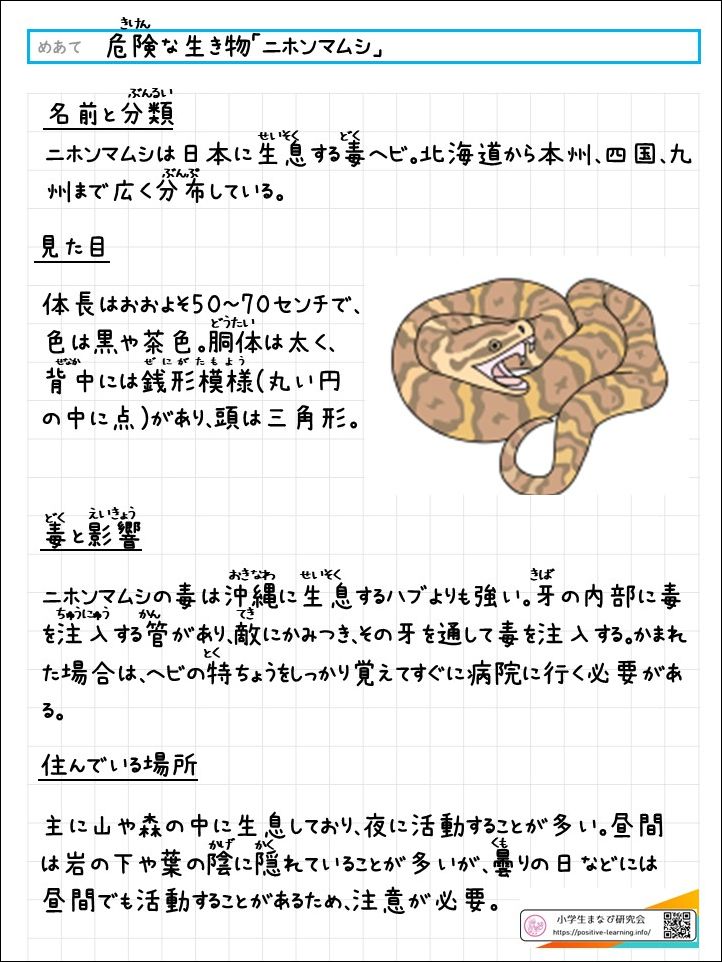 きけん
めあて 危険な生き物「ニホンマムシ」
ぶんるい
名前と分類
せいそく どく
ニホンマムシは日本に生息する毒ヘビ。北海道から本州、四国、九
ぶんぷ
州まで広く分布している。
見た目
体長はおおよそ50～70センチで、
どうたい
色は黒や茶色。胴体は太く、
せなか ぜにがたもよう
背中には銭形模様(丸い円
の中に点)があり、頭は三角形。
どく えいきょう
毒と影響
おきなわ せいそく きば
ニホンマムシの毒は沖縄に生息するハブよりも強い。牙の内部に毒
ちゅうにゅう かん てき
を注入する管があり、敵にかみつき、その牙を通して毒を注入する。かまれ
とく
た場合は、ヘビの特ちょうをしっかり覚えてすぐに病院に行く必要があ
る。
住んでいる場所
主に山や森の中に生息しており、夜に活動することが多い。昼間
かげ かく くも
は岩の下や葉の陰に隠れていることが多いが、曇りの日などには
昼間でも活動することがあるため、注意が必要。
小学生まなび研究会
https://positive-learning.info/